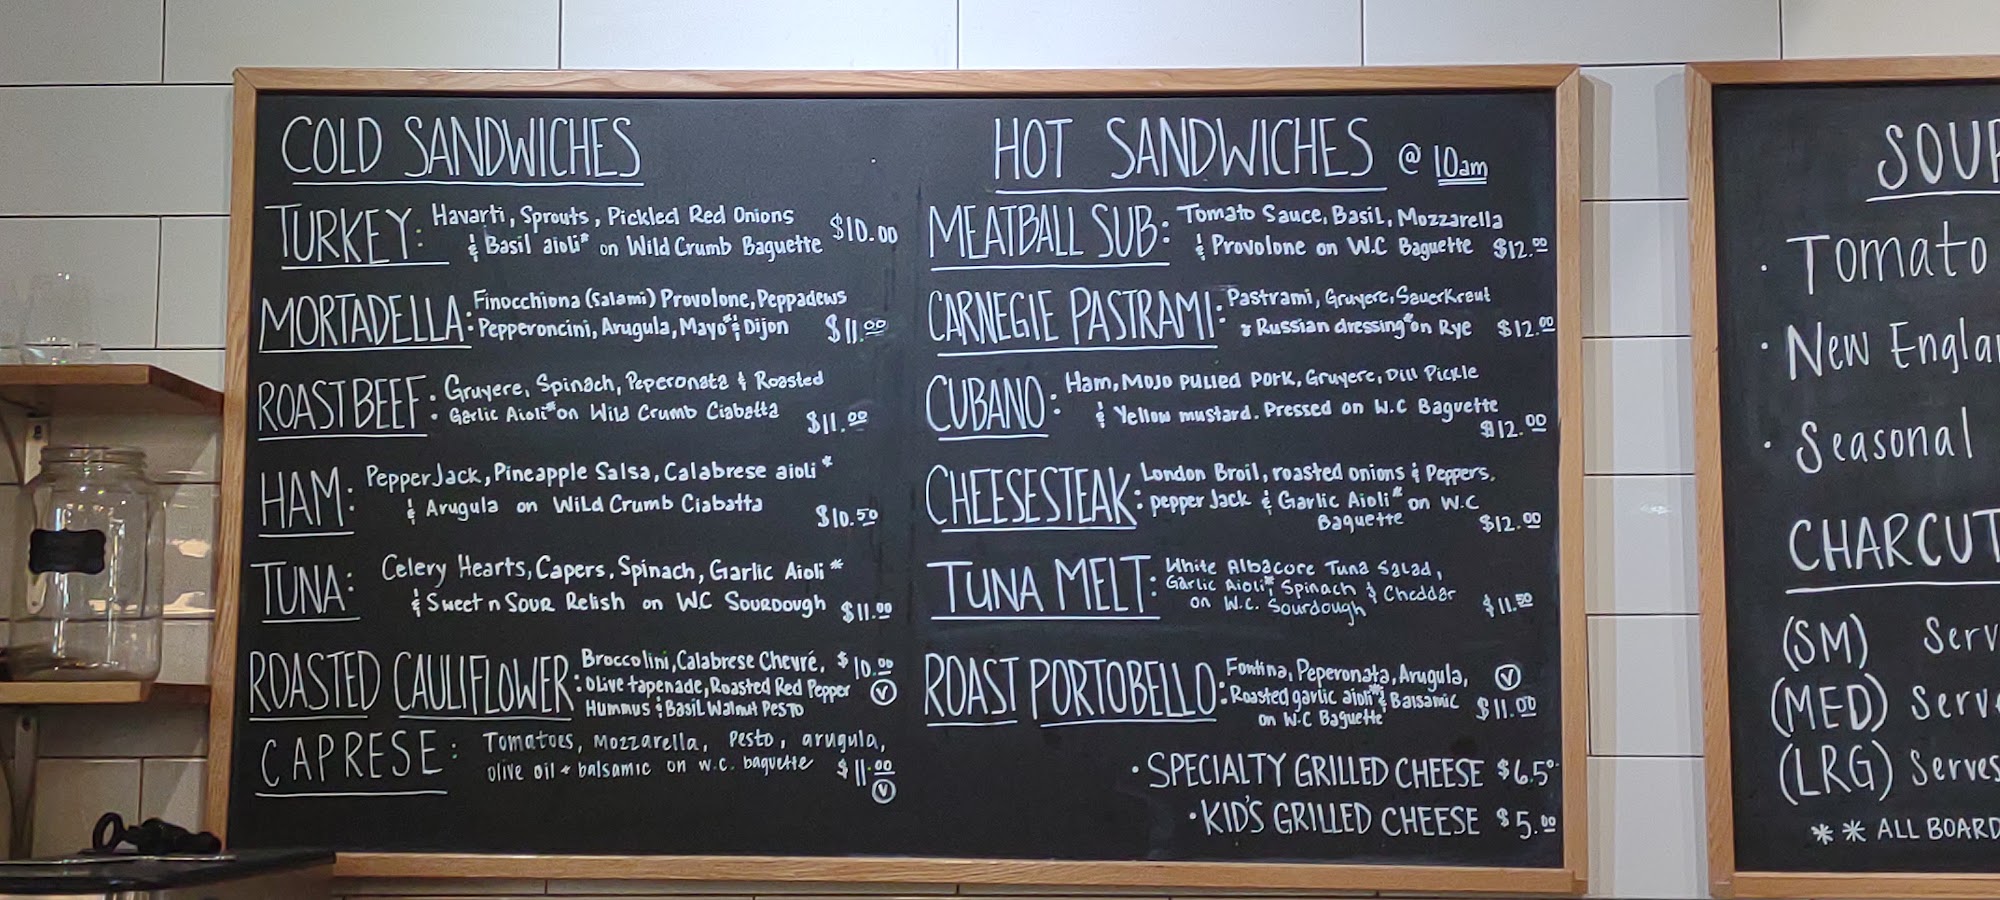 COLD SANDWICHES
TURKEY: Havarti, Sprouts, Pickled Red Onions
& Basil aioli* on Wild Crumb Baguette $10.00
MORTADELLA: Finocchiona (Salami) Provolone, Peppadews
Pepperoncini, Arugula, Mayo* & Dijon $11.00
ROAST BEEF: Gruyere, Spinach, Peperonata & Roasted
Garlic Aioli* on Wild Crumb Ciabatta $11.00
HAM: Pepper Jack, Pineapple Salsa, Calabrese aioli*
& Arugula on Wild Crumb Ciabatta $10.50
TUNA: Celery Hearts, Capers, Spinach, Garlic Aioli*
& Sweet n Sour Relish on WC Sourdough $11.00
ROASTED CAULIFLOWER: Broccolini, Calabrese Chevré, $10.00
Olive tapenade, Roasted Red Pepper V
Hummus & Basil Walnut Pesto
CAPRESE: Tomatoes, Mozzarella, Pesto, arugula,
olive oil + balsamic on W.C. baguette $11.00
V
HOT SANDWICHES @ 10am
MEATBALL SUB: Tomato Sauce, Basil, Mozzarella
& Provolone on W.C Baguette $12.00
CARNEGIE PASTRAMI: Pastrami, Gruyere, Sauerkraut
& Russian dressing* on Rye $12.00
CUBANO: Ham, Mojo Pulled Pork, Gruyere, Dill Pickle
& Yellow mustard. Pressed on W.C Baguette
$12.00
CHEESESTEAK: London Broil, roasted onions & Peppers,
pepper Jack & Garlic Aioli* on W.C
Baguette $12.00
TUNA MELT: White Albacore Tuna Salad,
Garlic Aioli*, Spinach & Cheddar
on W.C. Sourdough $11.50
ROAST PORTOBELLO: Fontina, Peperonata, Arugula, V
Roasted garlic aioli* & Balsamic $11.00
on W.C Baguette
· SPECIALTY GRILLED CHEESE $6.50
· KID'S GRILLED CHEESE $5.00
SOUP
· Tomato
· New Engla
· Seasonal
CHARCUT
(SM) Serv
(MED) Serve
(LRG) Serves
** ALL BOARD